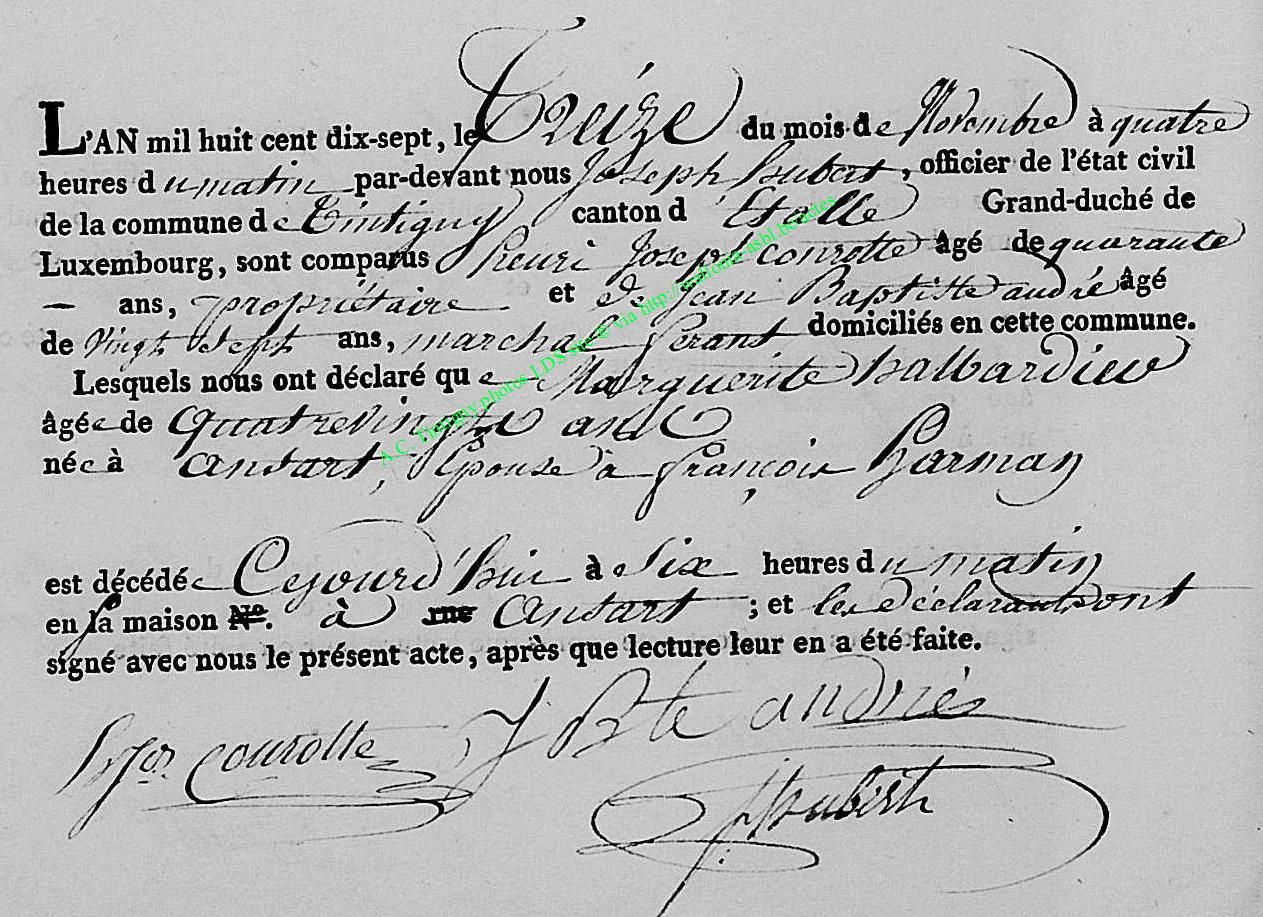 L'AN mil huit cent dix-sept, le Treize du mois de Novembre à quatre
heures du matin par-devant nous Joseph hubert, officier de l'état civil
de la commune de Tintigny canton d'Etalle Grand-duché de
Luxembourg, sont comparus henri Joseph conrotte âgé de quarante
— ans, propriétaire et de Jean Baptiste andré âgé
de vingt Sept ans, marchal ferant domiciliés en cette commune.
Lesquels nous ont déclaré que Marguerite halbardieu
âgée de quatrevingts ans
née à ansart, Epouse à françois harman
est décédée Cejourd'hui à Six heures du matin
en sa maison No. à rue ansart ; et les déclarants ont
signé avec nous le présent acte, après que lecture leur en a été faite.
J Bte andrié
conrotte
hubert
A.C. Tintigny photos LDS site © via http://millonna-asbl.be/actes